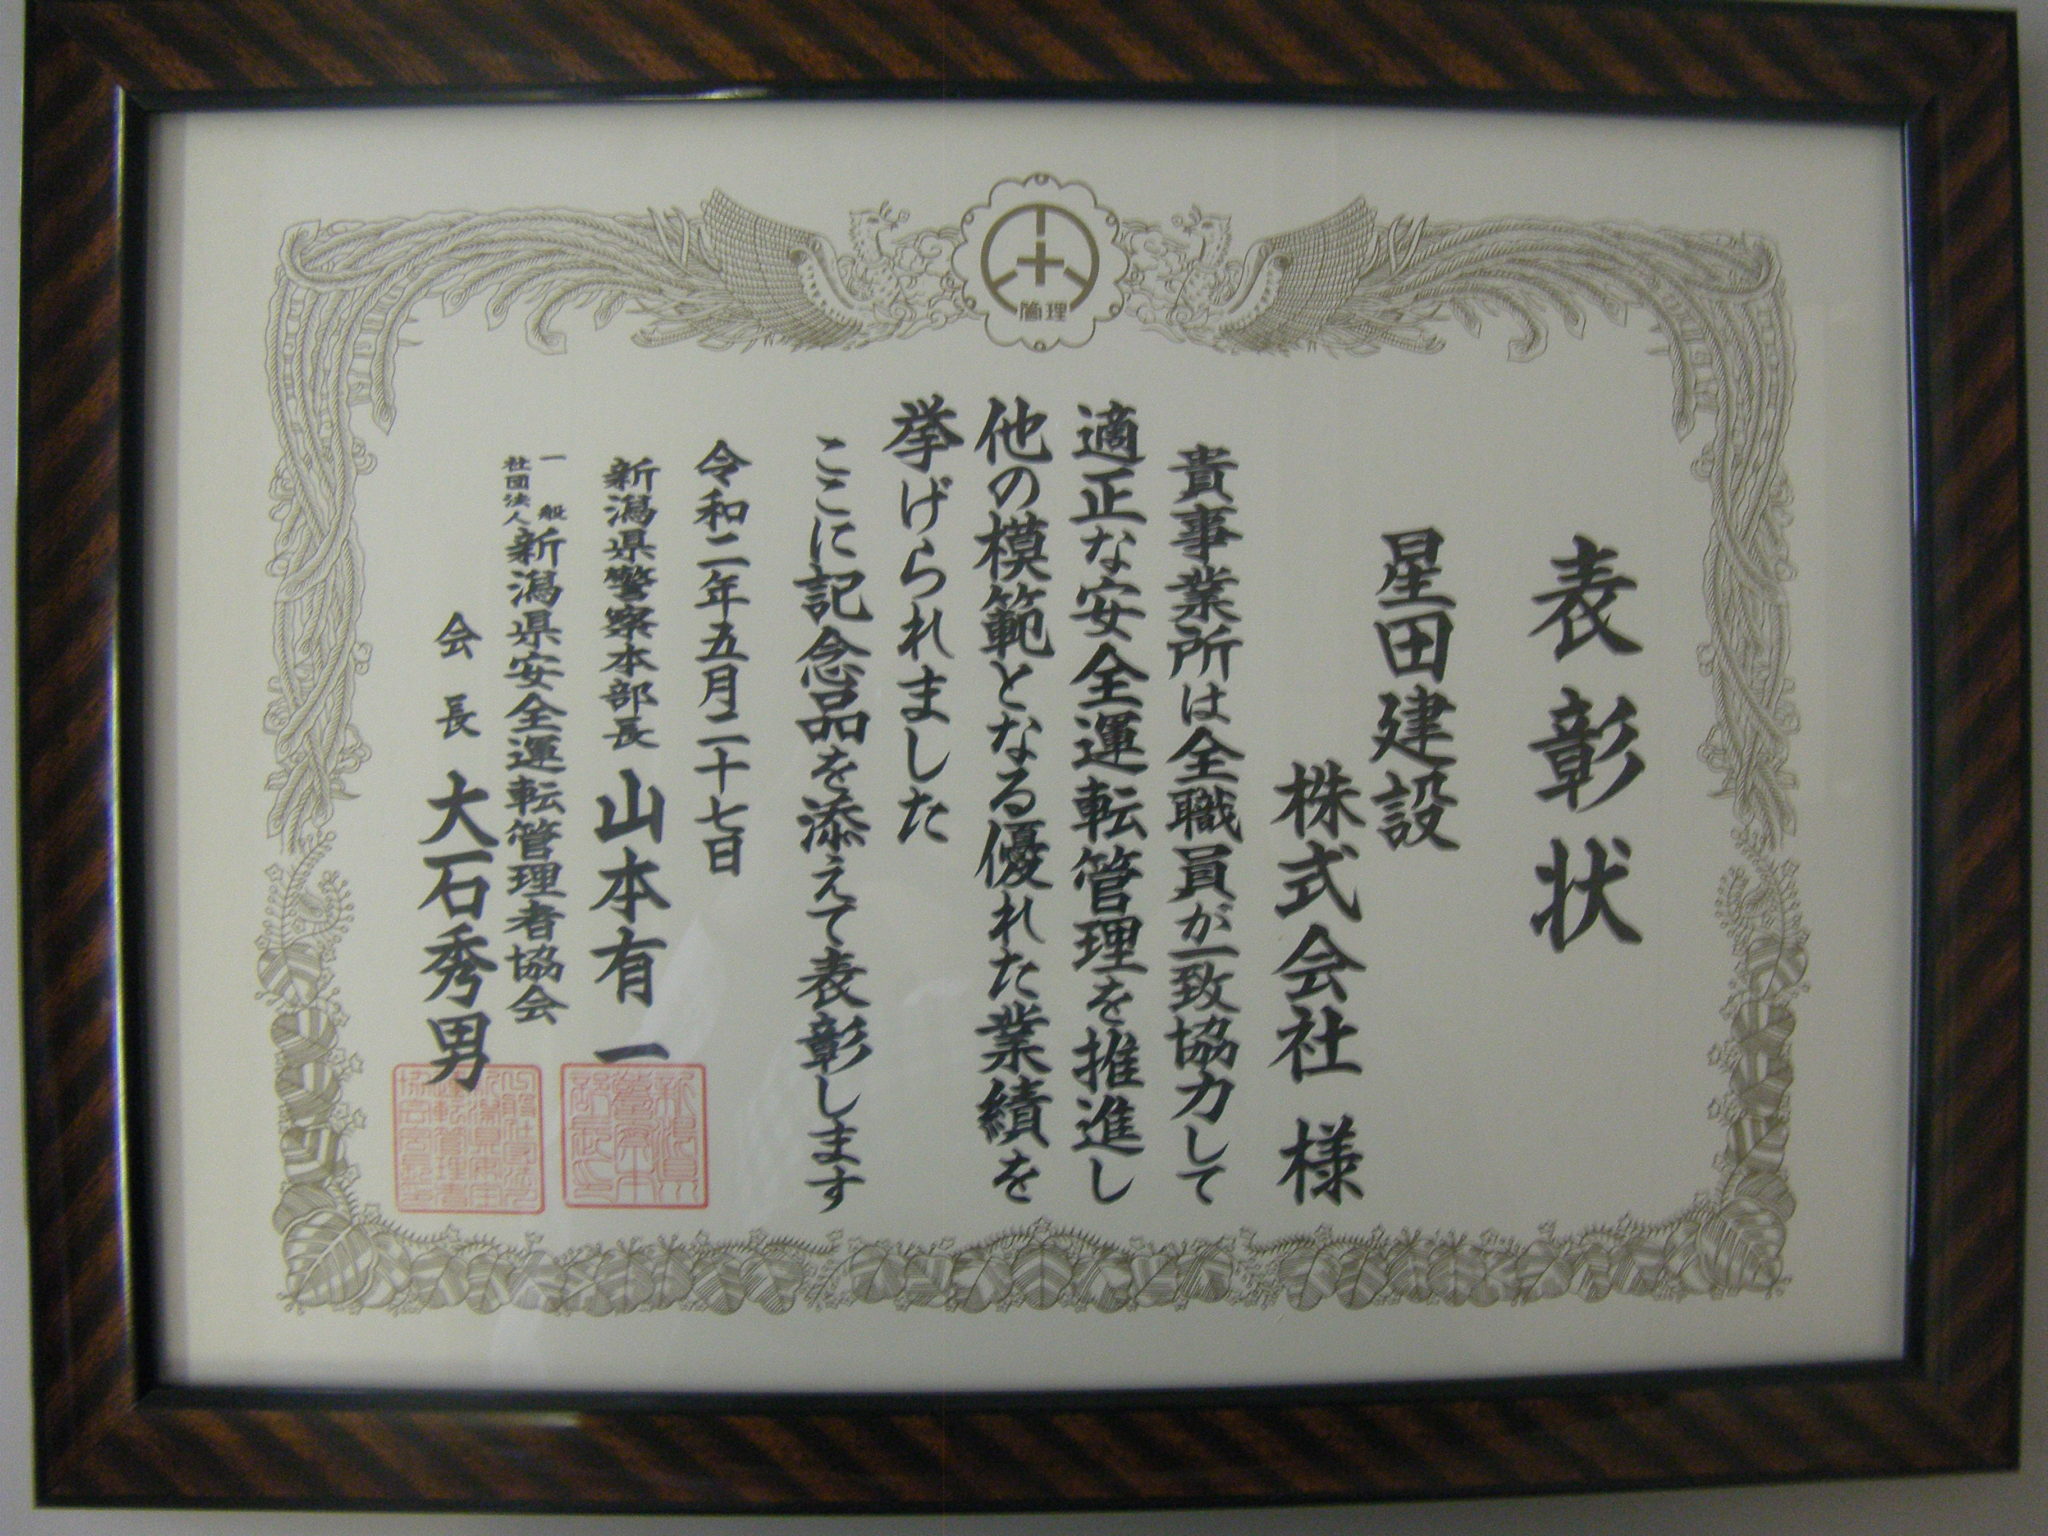 管理
表彰状
星田建設
株式会社 様
貴事業所は全職員が一致協力して
適正な安全運転管理を推進し
他の模範となる優れた業績を
挙げられました
ここに記念品を添えて表彰します
令和二年五月二十七日
新潟県警察本部長 山本有一
一般社団法人 新潟県安全運転管理者協会
会長 大石秀男